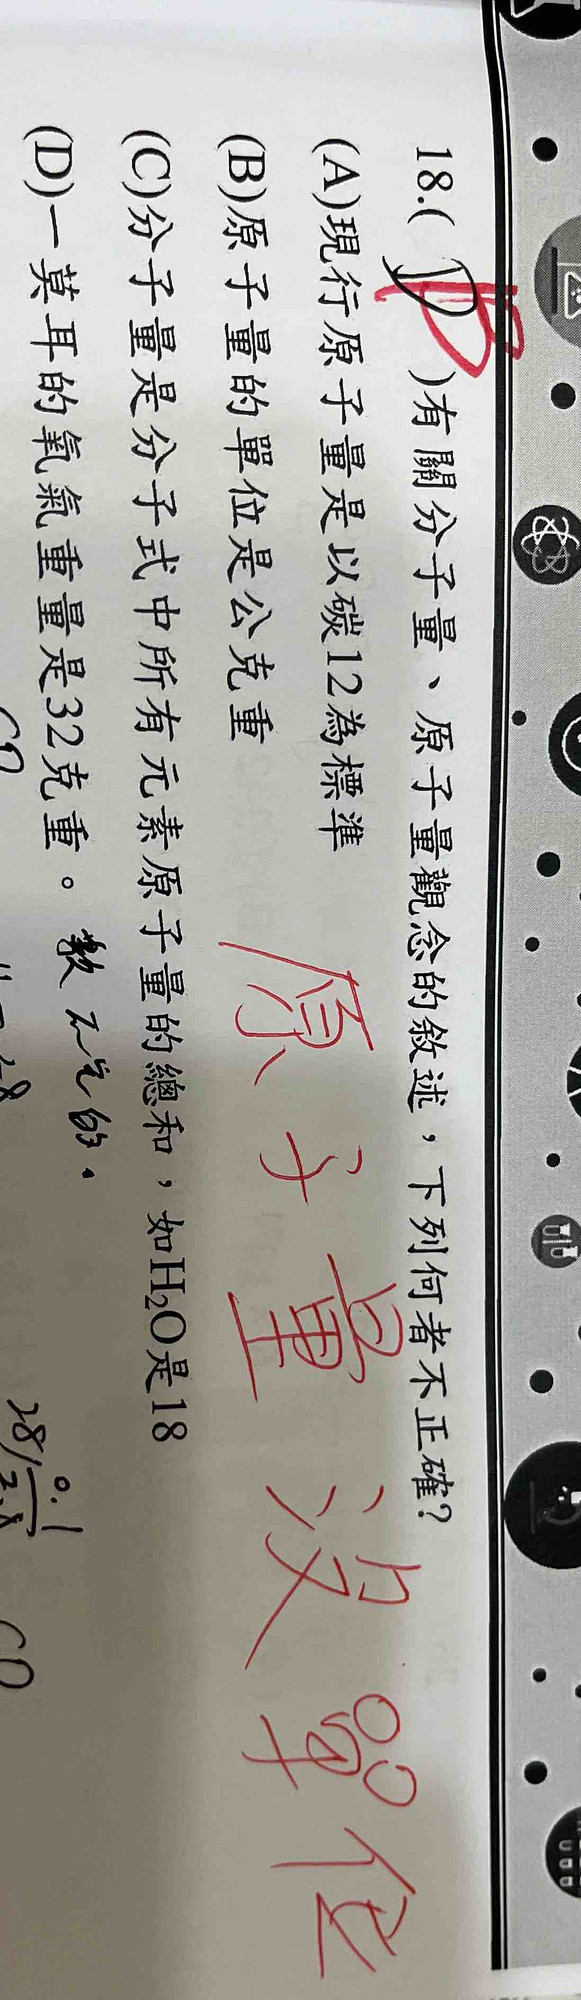 18.( D B )有關分子量、原子量觀念的敘述，下列何者不正確？
(A)現行原子量是以碳12為標準
(B)原子量的單位是公克重
原子量沒單位
(C)分子量是分子式中所有元素原子量的總和，如H₂O是18
(D)一莫耳的氧氣重量是32克重。
0.1
28/2.8
CO